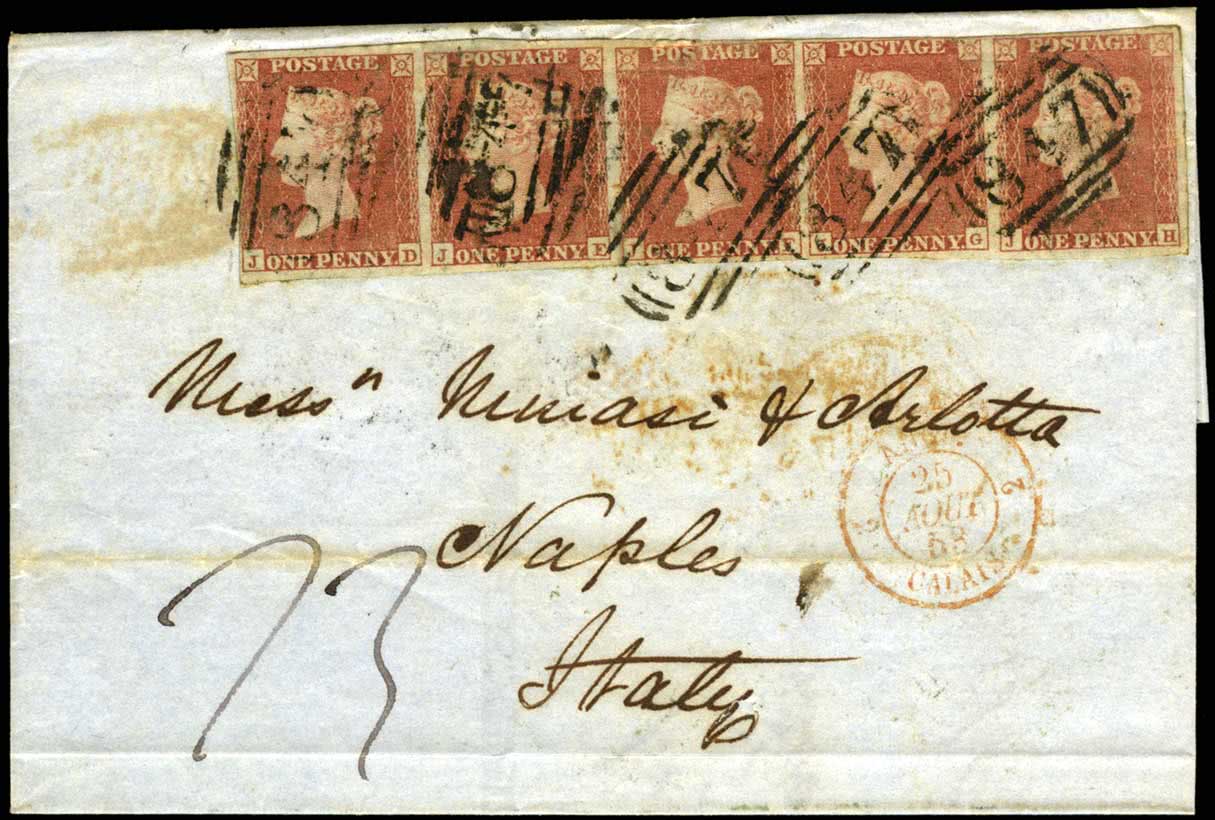 POSTAGE POSTAGE POSTAGE POSTAGE POSTAGE
J ONE PENNY. D J ONE PENNY. E ONE PENNY. ONE PENNY. G J ONE PENNY. H
847
Mess" & Arlotta
Naples
Italy
25
AOUT
53
CALAIS
2 2
73